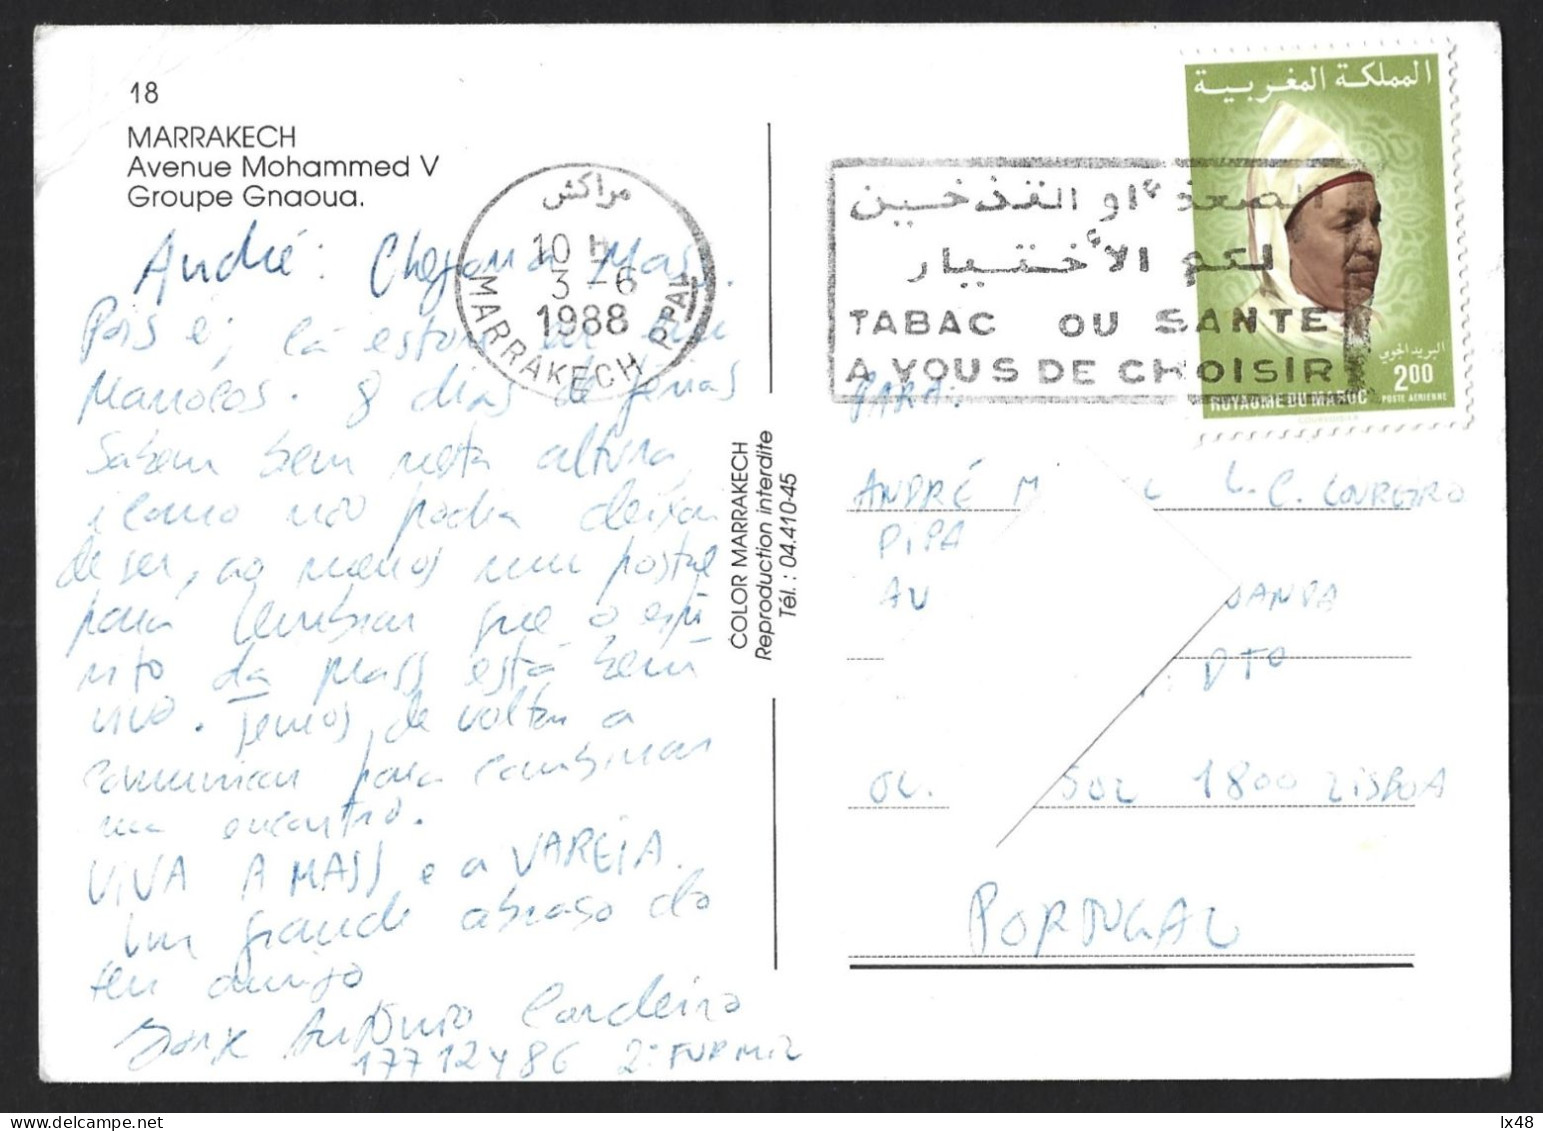 18
MARRAKECH
Avenue Mohammed V
Groupe Gnaoua.
مراكش
10 H
3 - 6
1988
MARRAKECH PPAL
الصحة أو التدخين
لكم الأختيار
TABAC OU SANTE
A VOUS DE CHOISIR
المملكة المغربية
البريد الجوي
2.00
ROYAUME DU MAROC POSTE AÉRIENNE
COURVOISIER
André:
Pois é, cá estou eu em
Marrocos. 8 dias de férias
sabem bem nesta altura,
e como não podia deixar
de ser, ao menos um postal
para lembrar que o espí
rito da Mass está bem
vivo. Temos de voltar a
comunicar para combinar
um encontro.
VIVA A MASS e a
Um grande abraço do
teu amigo
Jorge António Cordeiro
17712486
COLOR MARRAKECH
Reproduction interdite
Tél. : 04.410-45
PARA:
ANDRÉ M L. C. LOUREIRO
PIPA
AV
DTO
1800 LISBOA
PORTUGAL
lx48